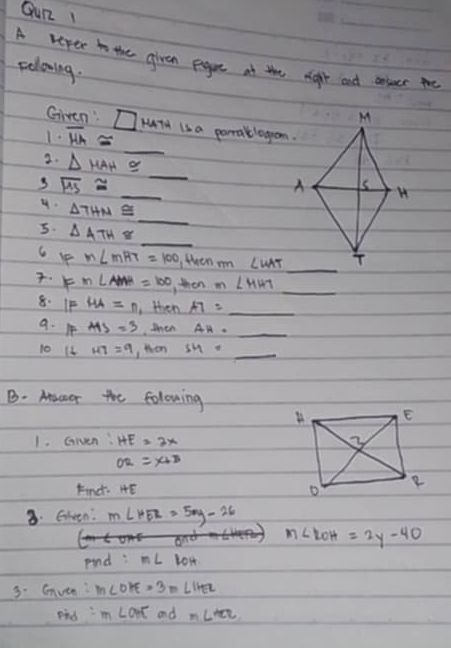 Quiz 1
A Refer to the given figure at the right and answer the
following.
Given: ▱ MATH is a parallelogram.
1. MA ≅ ____
2. △ MAH ≅ ____
3. MS ≅ ____
4. △THM ≅ ____
5. △ATH ≅ ____
6 If m∠MAT = 100, then m ∠HAT ____
7. If m∠AMH = 100, then m ∠MHT ____
8. If MA = n, then AT = ____
9. If AS = 3, then AH = ____
10 If MT = 9, then SM = ____
M
A
S
H
T
B. Answer the following
1. Given: HE = 2x
OR = x+8
Find: HE
H
E
Z
O
R
3. Given: m∠HER = 5y - 26
m∠ROH = 2y - 40
Find: m∠ ROH.
3. Given: m∠OHE = 3m∠HER
Find: m∠OHE and m∠HER.